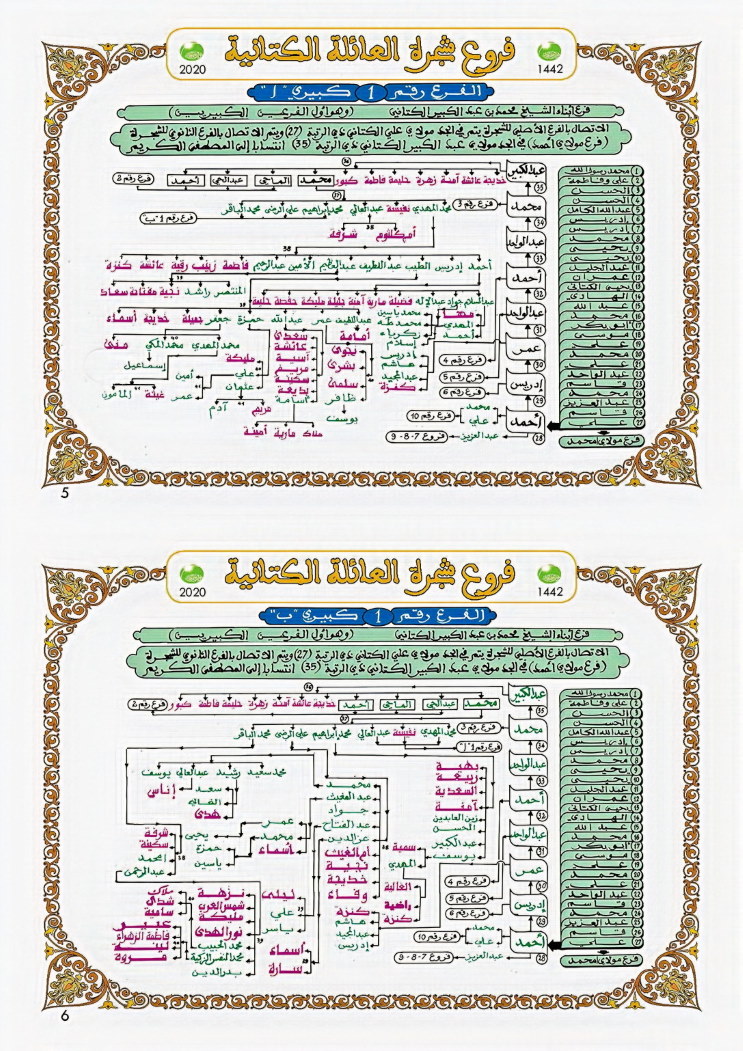 فروع شجرة العائلة الكتانية
1442
2020
الفرع رقم 1 كبيري "أ"
فرع أبناء الشيخ محمد بن عبد الكبير الكتاني (وهو أول الفرعين الكبيريين)
الاتصال بالفرع الأصلي للشجرة يتم في الجد مولاي علي الكتاني ذي الرتبة (27) ويتم الاتصال بالفرع الثانوي للشجرة
(فرع مولاي أحمد) في الجد مولاي عبد الكبير الكتاني ذي الرتبة (35) انتسابا إلى المصطفى الكريم
عبد الكبير
36
35
خديجة عائشة آمنة زهرة حليمة فاطمة كبور
محمد
الماحي
عبد الحي
أحمد
فرع رقم 2
37
محمد
فرع رقم 3
محمد المهدي نفيسة عبد العالي محمد ابراهيم علي الرضى محمد الباقر
فرع رقم 1 "ب"
34
أم كلثوم شرفة
38
عبد الواحد
33
أحمد إدريس الطيب عبد اللطيف عبد العظيم الأمين عبد الرحيم فاطمة زينب رقية عائشة كنزة
أحمد
32
عبد الواحد
31
عمر
30
فرع رقم 4
فرع رقم 5
فرع رقم 6
إدريس
29
أحمد
28
محمد
علي
فرع رقم 10
عبد العزيز
فروع 7-8-9
المنتصر راشد نجية مفتاحة سعاد
عبد السلام جواد عبد الإله فضيلة مارية آمنة جليلة مليكة حفصة حليمة
مها
المهدي
أحمد
محمد ياسين
محمد طه
زكرياء
إسلام
إدريس
هاشم
عبد المجيد
كنزة
عبد اللطيف عمر عبد الله حمزة جعفر جميلة خديجة أسماء
أمامة
نجوى
بشرى
سلمى
ظافر
يوسف
سعدى
عائشة
آسية
مريم
سكينة
بديعة
أسامة
ملاك مارية آمنة
مليكة
علي
عثمان
مريم آدم
محمد المهدي محمد المكي منى
إسماعيل
أمين
عمر
غيثة المامون
1 محمد رسول الله
2 علي وفاطمة
3 الحسن
4 الحسن
5 عبد الله الكامل
6 إدريس
7 إدريس
8 محمد
9 يحيى
10 يحيى
11 عبد الجليل
12 عمران
13 يحيى الكتاني
14 الهادي
15 عبد الله
16 محمد
17 أبو بكر
18 موسى
19 علي
20 محمد
21 علي
22 عبد الواحد
23 قاسم
24 محمد
25 عبد العزيز
26 قاسم
27 علي
فرع مولاي أحمد
5
فروع شجرة العائلة الكتانية
1442
2020
الفرع رقم 1 كبيري "ب"
فرع أبناء الشيخ محمد بن عبد الكبير الكتاني (وهو أول الفرعين الكبيريين)
الاتصال بالفرع الأصلي للشجرة يتم في الجد مولاي علي الكتاني ذي الرتبة (27) ويتم الاتصال بالفرع الثانوي للشجرة
(فرع مولاي أحمد) في الجد مولاي عبد الكبير الكتاني ذي الرتبة (35) انتسابا إلى المصطفى الكريم
عبد الكبير
36
35
محمد
عبد الحي
الماحي
أحمد
خديجة عائشة آمنة زهرة حليمة فاطمة كبور
فرع رقم 2
37
محمد
فرع رقم 3
محمد المهدي نفيسة عبد العالي محمد ابراهيم علي الرضى محمد الباقر
فرع رقم 1 "أ"
34
عبد الواحد
33
أحمد
32
عبد الواحد
31
عمر
30
فرع رقم 4
فرع رقم 5
فرع رقم 6
إدريس
29
أحمد
28
محمد
علي
فرع رقم 10
عبد العزيز
فروع 7-8-9
بهية
ربيعة
السعدية
آمنة
زين العابدين
الحسن
عبد الكبير
يوسف
سمية
المهدي
الغالية
راضية
كنزة
محمد
عبد المغيث
جواد
عبد الفتاح
عز الدين
أم الغيث
نجية
خديجة
وفاء
كنزة
هاشم
عبد المجيد
إدريس
محمد سعيد رشيد عبد العالي يوسف
سعد
إناس
هدى
عمر
محمد
أسماء
يحيى
حمزة
ياسين
شرفة
سكينة
امحمد
عبد الرحمن
38
ليلى
علي
ياسر
أسماء
سارة
نزهة
شمس العرب
مليكة
نور الهدى
محمد الحبيب
محمد النفس الزكية
بدر الدين
ملاك
شذى
سامية
عبير
فاطمة الزهراء
لينة
مروة
1 محمد رسول الله
2 علي وفاطمة
3 الحسن
4 الحسن
5 عبد الله الكامل
6 إدريس
7 إدريس
8 محمد
9 يحيى
10 يحيى
11 عبد الجليل
12 عمران
13 يحيى الكتاني
14 الهادي
15 عبد الله
16 محمد
17 أبو بكر
18 موسى
19 علي
20 محمد
21 علي
22 عبد الواحد
23 قاسم
24 محمد
25 عبد العزيز
26 قاسم
27 علي
فرع مولاي أحمد
6